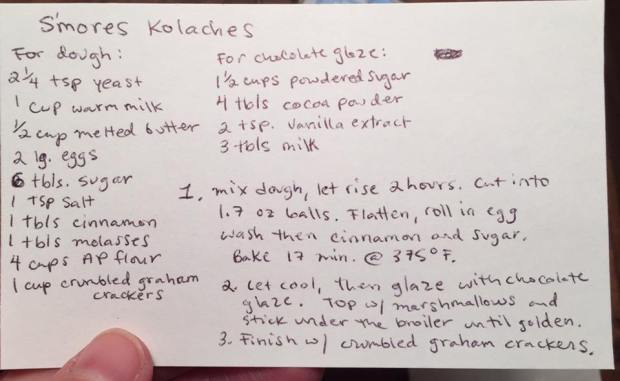 S'mores Kolaches
For dough:
2 1/4 tsp yeast
1 cup warm milk
1/2 cup melted butter
2 lg. eggs
6 tbls. sugar
1 tsp salt
1 tbls cinnamon
1 tbls molasses
4 cups AP flour
1 cup crumbled graham
crackers
For chocolate glaze:
1 1/2 cups powdered sugar
4 tbls cocoa powder
2 tsp. vanilla extract
3 tbls milk
1. mix dough, let rise 2 hours. Cut into
1.7 oz balls. Flatten, roll in egg
wash then cinnamon and sugar.
Bake 17 min. @ 375°F.
2. Let cool, then glaze with chocolate
glaze. Top w/ marshmallows and
stick under the broiler until golden.
3. Finish w/ crumbled graham crackers.